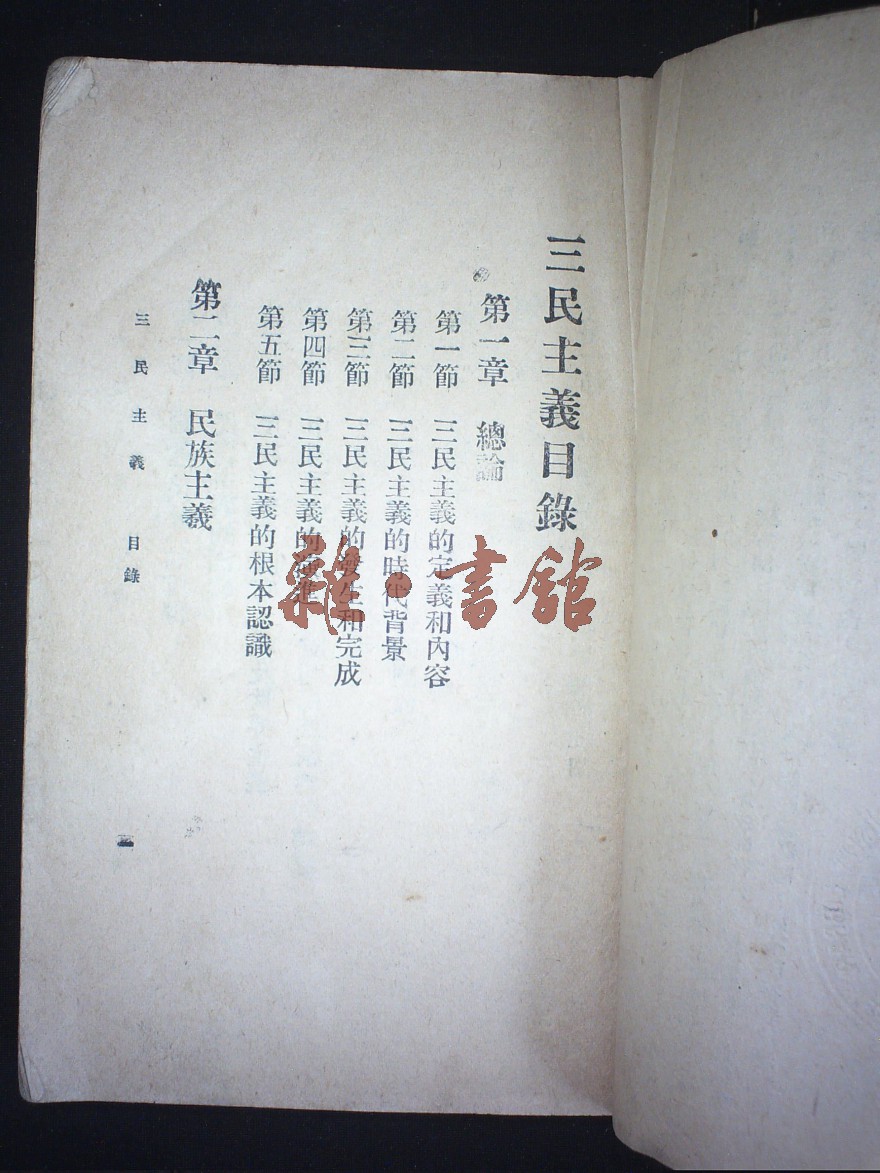 三民主義目錄
第一章 總論
第一節 三民主義的定義和內容
第二節 三民主義的時代背景
第三節 三民主義的發生和完成
第四節 三民主義的演進
第五節 三民主義的根本認識
第二章 民族主義
三民主義 目錄
雜·書館